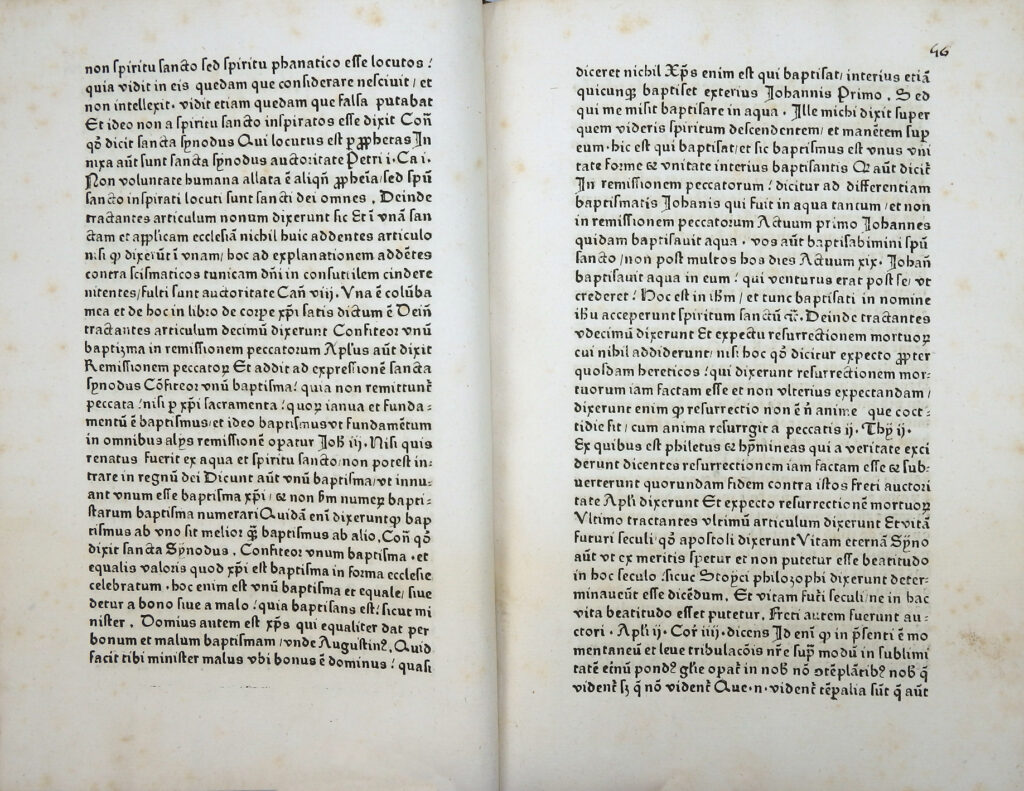 non spiritu sancto sed spiritu phanatico esse locutos !
quia vidit in eis quedam que considerare nesciuit / et
non intellexit. vidit etiam quedam que falsa putabat
Et ideo non a spiritu sancto inspiratos esse dixit Coñ
qȯ dicit sancta synodus Qui locutus est ꝑ ꝓphetas In
nixa aūt sunt sancta synodus auctoritate Petri i. Ca i.
Non voluntate humana allata ē aliqñ ꝓpheīa / sed spū
sancto inspirati locuti sunt sancti dei omnes . Deinde
tractantes articulum nonum dixerunt sic Et ī vnā san
ctam et applicam ecclesiā nichil huic addentes articulo
nisi ꝙ dixerūt ī vnam / hoc ad explanationem addētes
contra scismaticos tunicam dñi in consutilem cindere
nitentes / fulti sunt auctoritate Cañ viij. Vna ē colūba
mea et de hoc in libro de corpe xp̄i satis dictum ē Deiñ
tractantes articulum decimū dixerunt Confiteor vnū
baptizma in remissionem peccatorum Aplūs aūt dixit
Remissionem peccatoꝝ Et addit ad expressionē sancta
synodus Cōfiteor vnū baptisma ! quia non remittunt᷑
peccata ! nisi ꝑ xp̄i sacramenta ! quoꝝ ianua et funda =
mentū ē baptismus / et ideo baptismus vt fundamētum
in omnibus alys remissionē opatur Joh̄ iij. Nisi quis
renatus fuerit ex aqua et spiritu sancto / non potest in=
trare in regnū dei Dicunt aūt vnū baptisma / vt innu=
ant vnum esse baptisma xp̄i / & non h̄m numeꝝ bapti=
starum baptisma numerari Quidā enī dixerunt ꝙ bap
tismus ab vno sit melior q̄ȝ baptismus ab alio. Coñ qȯ
dixit sancta Synodus . Confiteor vnum baptisma . et
equalis valoris quod xp̄i est baptisma in forma ecclesie
celebratum . hoc enim est vnū baptisma et equale / siue
detur a bono siue a malo ! quia baptisans est ! sicut mi
nister . Domius autem est xp̄s qui equaliter dat per
bonum et malum baptismam / vnde Augustin⁹. Quid
facit tibi minister malus vbi bonus ē dominus ! quasi
46
diceret nichil Xp̄s enim est qui baptisat / interius etiā
quicunqȝ baptiset exterius Johannis Primo . Sed
qui me misit baptisare in aqua . Ille michi dixit super
quem videris spiritum descendentem / et manētem sup
eum. hic est qui baptisat / et sic baptismus est vnus vni
tate forme & vnitate interius baptisantis Q aūt dicit᷑
In remissionem peccatorum ! dicitur ad differentiam
baptismatis Johanis qui fuit in aqua tantum / et non
in remissionem peccatorum Actuum primo Johannes
quidam baptisauit aqua . vos aūt baptisabimini spū
sancto / non post multos hos dies Actuum xix. Johañ
baptisauit aqua in eum ! qui venturus erat post se / vt
crederet ! Hoc est in ih̄m / et tunc baptisati in nomine
ih̄u acceperunt spiritum sanctū &̄. Deinde tractantes
vdecimū dixerunt Et expectu resurrectionem mortuoꝝ
cui nihil addiderunt / nisi hoc qȯ dicitur expecto ꝓpter
quosdam hereticos ! qui dixerunt resurrectionem mor=
tuorum iam factam esse et non vlterius expectandam /
dixerunt enim ꝙ resurrectio non ē ñ anime que coct=
tidie fit / cum anima resurrgit a peccatis ij. Thy̅ ij.
Ex quibus est philetus & hymineas qui a veritate exci
derunt dicentes resurrectionem iam factam esse & sub=
uerterunt quorundam fidem contra istos freti auctori
tate Apl̄i dixerunt Et expecto resurrectionē mortuoꝝ
Vltimo tractantes vltimū articulum dixerunt Et vitā
futuri seculi qȯ apostoli dixerunt Vitam eternā Syno
aūt vt ex meritis spetur et non putetur esse beatitudo
in hoc seculo sicuc Stoyci philozophi dixerunt deter=
minauerūt esse dicēdum . Et vitam futī seculi / ne in hac
vita beatitudo esset putetur. Freti autem fuerunt au=
ctori . Apl̄i ij. Cor̄ iiij. dicens Id enī ꝙ in p̄senti ē mo
mentaneū et leue tribulacōis nr̄e sup̄ modū in sublimi
tatē et̄nū pond⁹ gl̄ie opat᷑ in nob̄ nō ↄtēplātib⁹ nob̄ q̄
vident᷑ sȝ q̄ nō vident᷑ Que. n. vident᷑ tēpalia sūt q̄ aūt